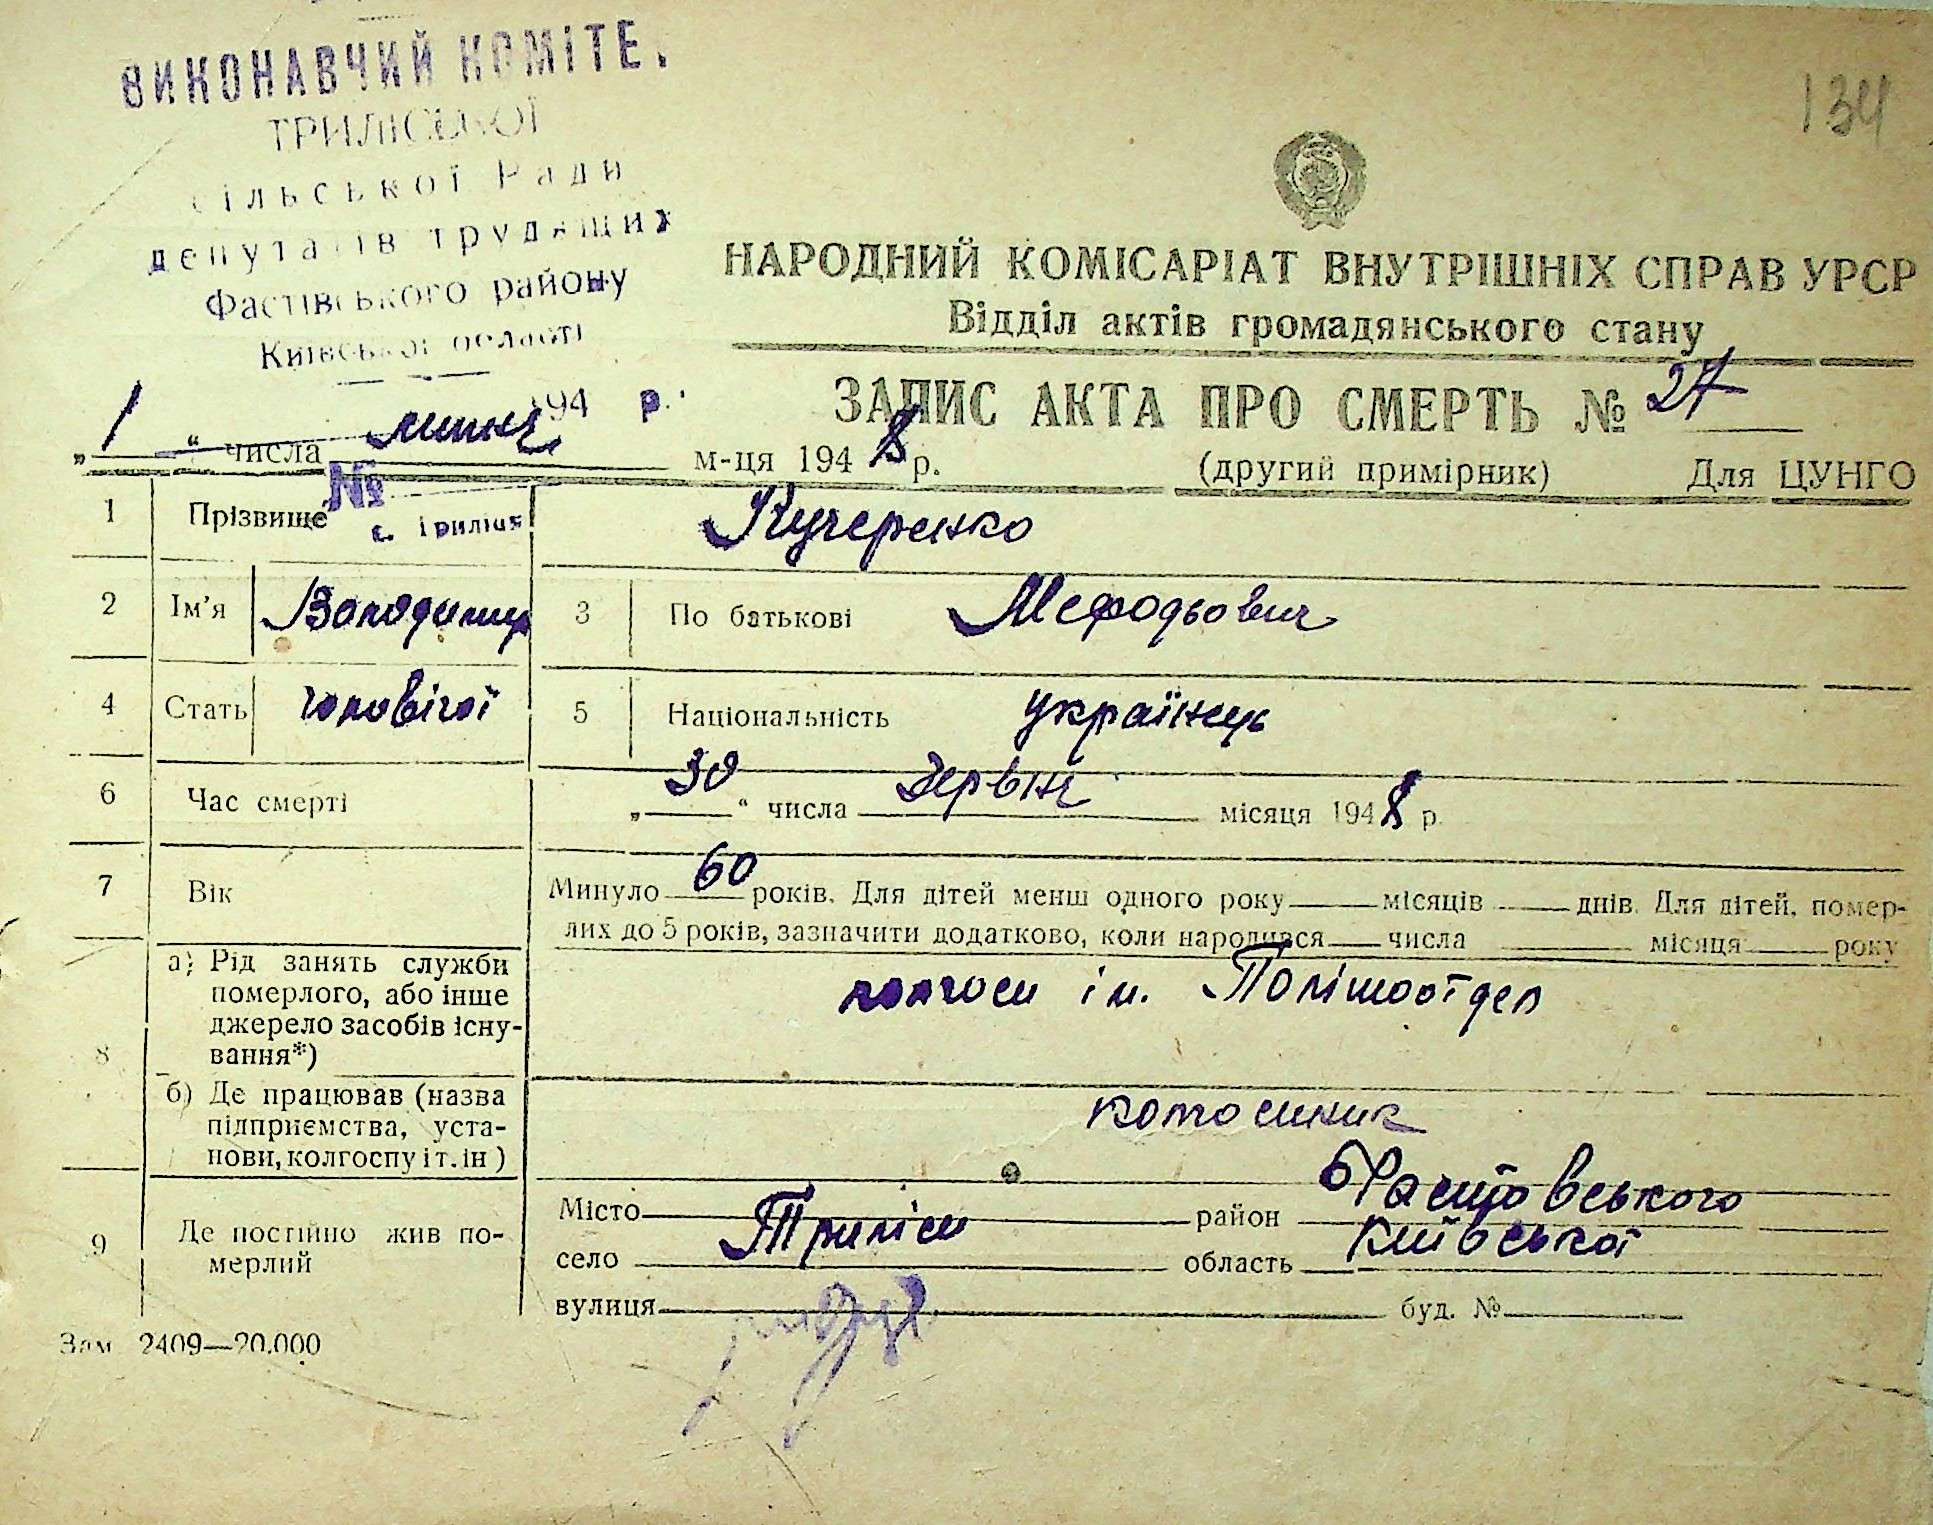 ВИКОНАВЧИЙ КОМІТЕ
ТРИЛІСЬКОЇ
сільської Ради
депутатів трудящих
Фастівського району
Київської області
194 р.
№
с. Триліси
134
НАРОДНИЙ КОМІСАРІАТ ВНУТРІШНІХ СПРАВ УРСР
Відділ актів громадянського стану
ЗАПИС АКТА ПРО СМЕРТЬ № 27
„1“ числа липня м-ця 1948 р. (другий примірник) Для ЦУНГО
1 Прізвище Кучеренко
2 Ім'я Володимир 3 По батькові Мефодьович
4 Стать чоловічої 5 Національність українець
6 Час смерті „30“ числа Червня місяця 1948 р.
7 Вік Минуло 60 років. Для дітей менш одного року місяців днів. Для дітей, помер-
лих до 5 років, зазначити додатково, коли народився числа місяця року
8 а) Рід занять служби
померлого, або інше
джерело засобів існу-
вання*)
колгосп ім. Політвоотдел
б) Де працював (назва
підприємства, уста-
нови, колгоспу і т. ін)
колгоспник
9 Де постійно жив по-
мерлий
Місто район Фастовського
село Триліси область Київської
вулиця буд. №
Зам 2409—20.000